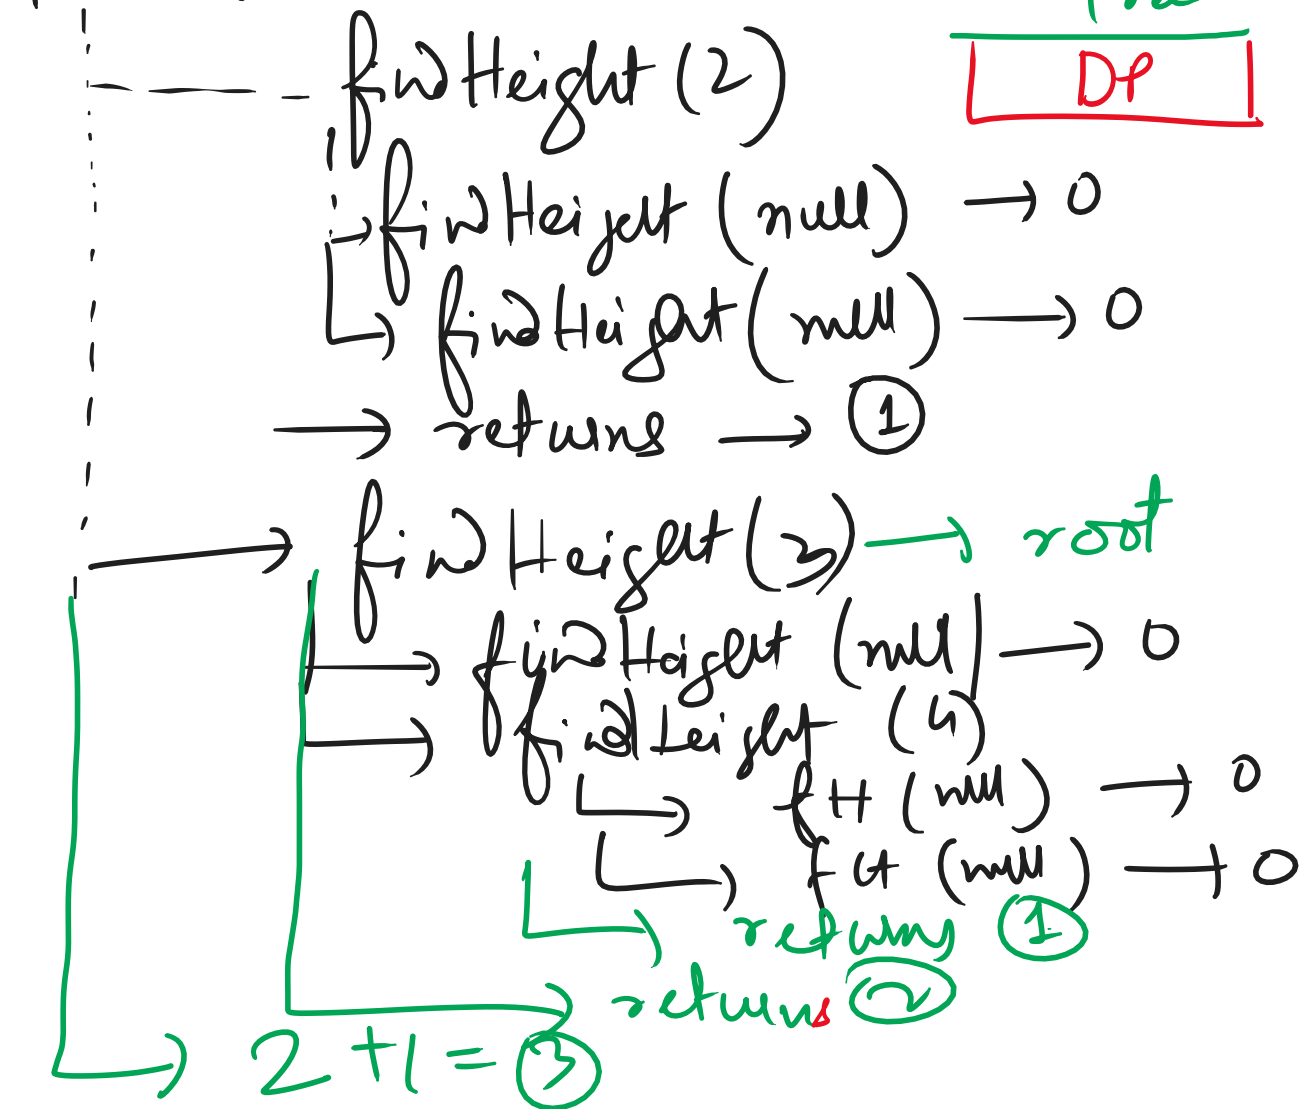 findHeight (2)
DP
findHeight (null) → 0
findHeight (null) → 0
→ returns → 1
→ findHeight (3) → root
→ findHeight (null) → 0
→ findHeight (4)
→ fH (null) → 0
→ fH (null) → 0
→ returns 1
→ returns 2
→ 2 + 1 = 3